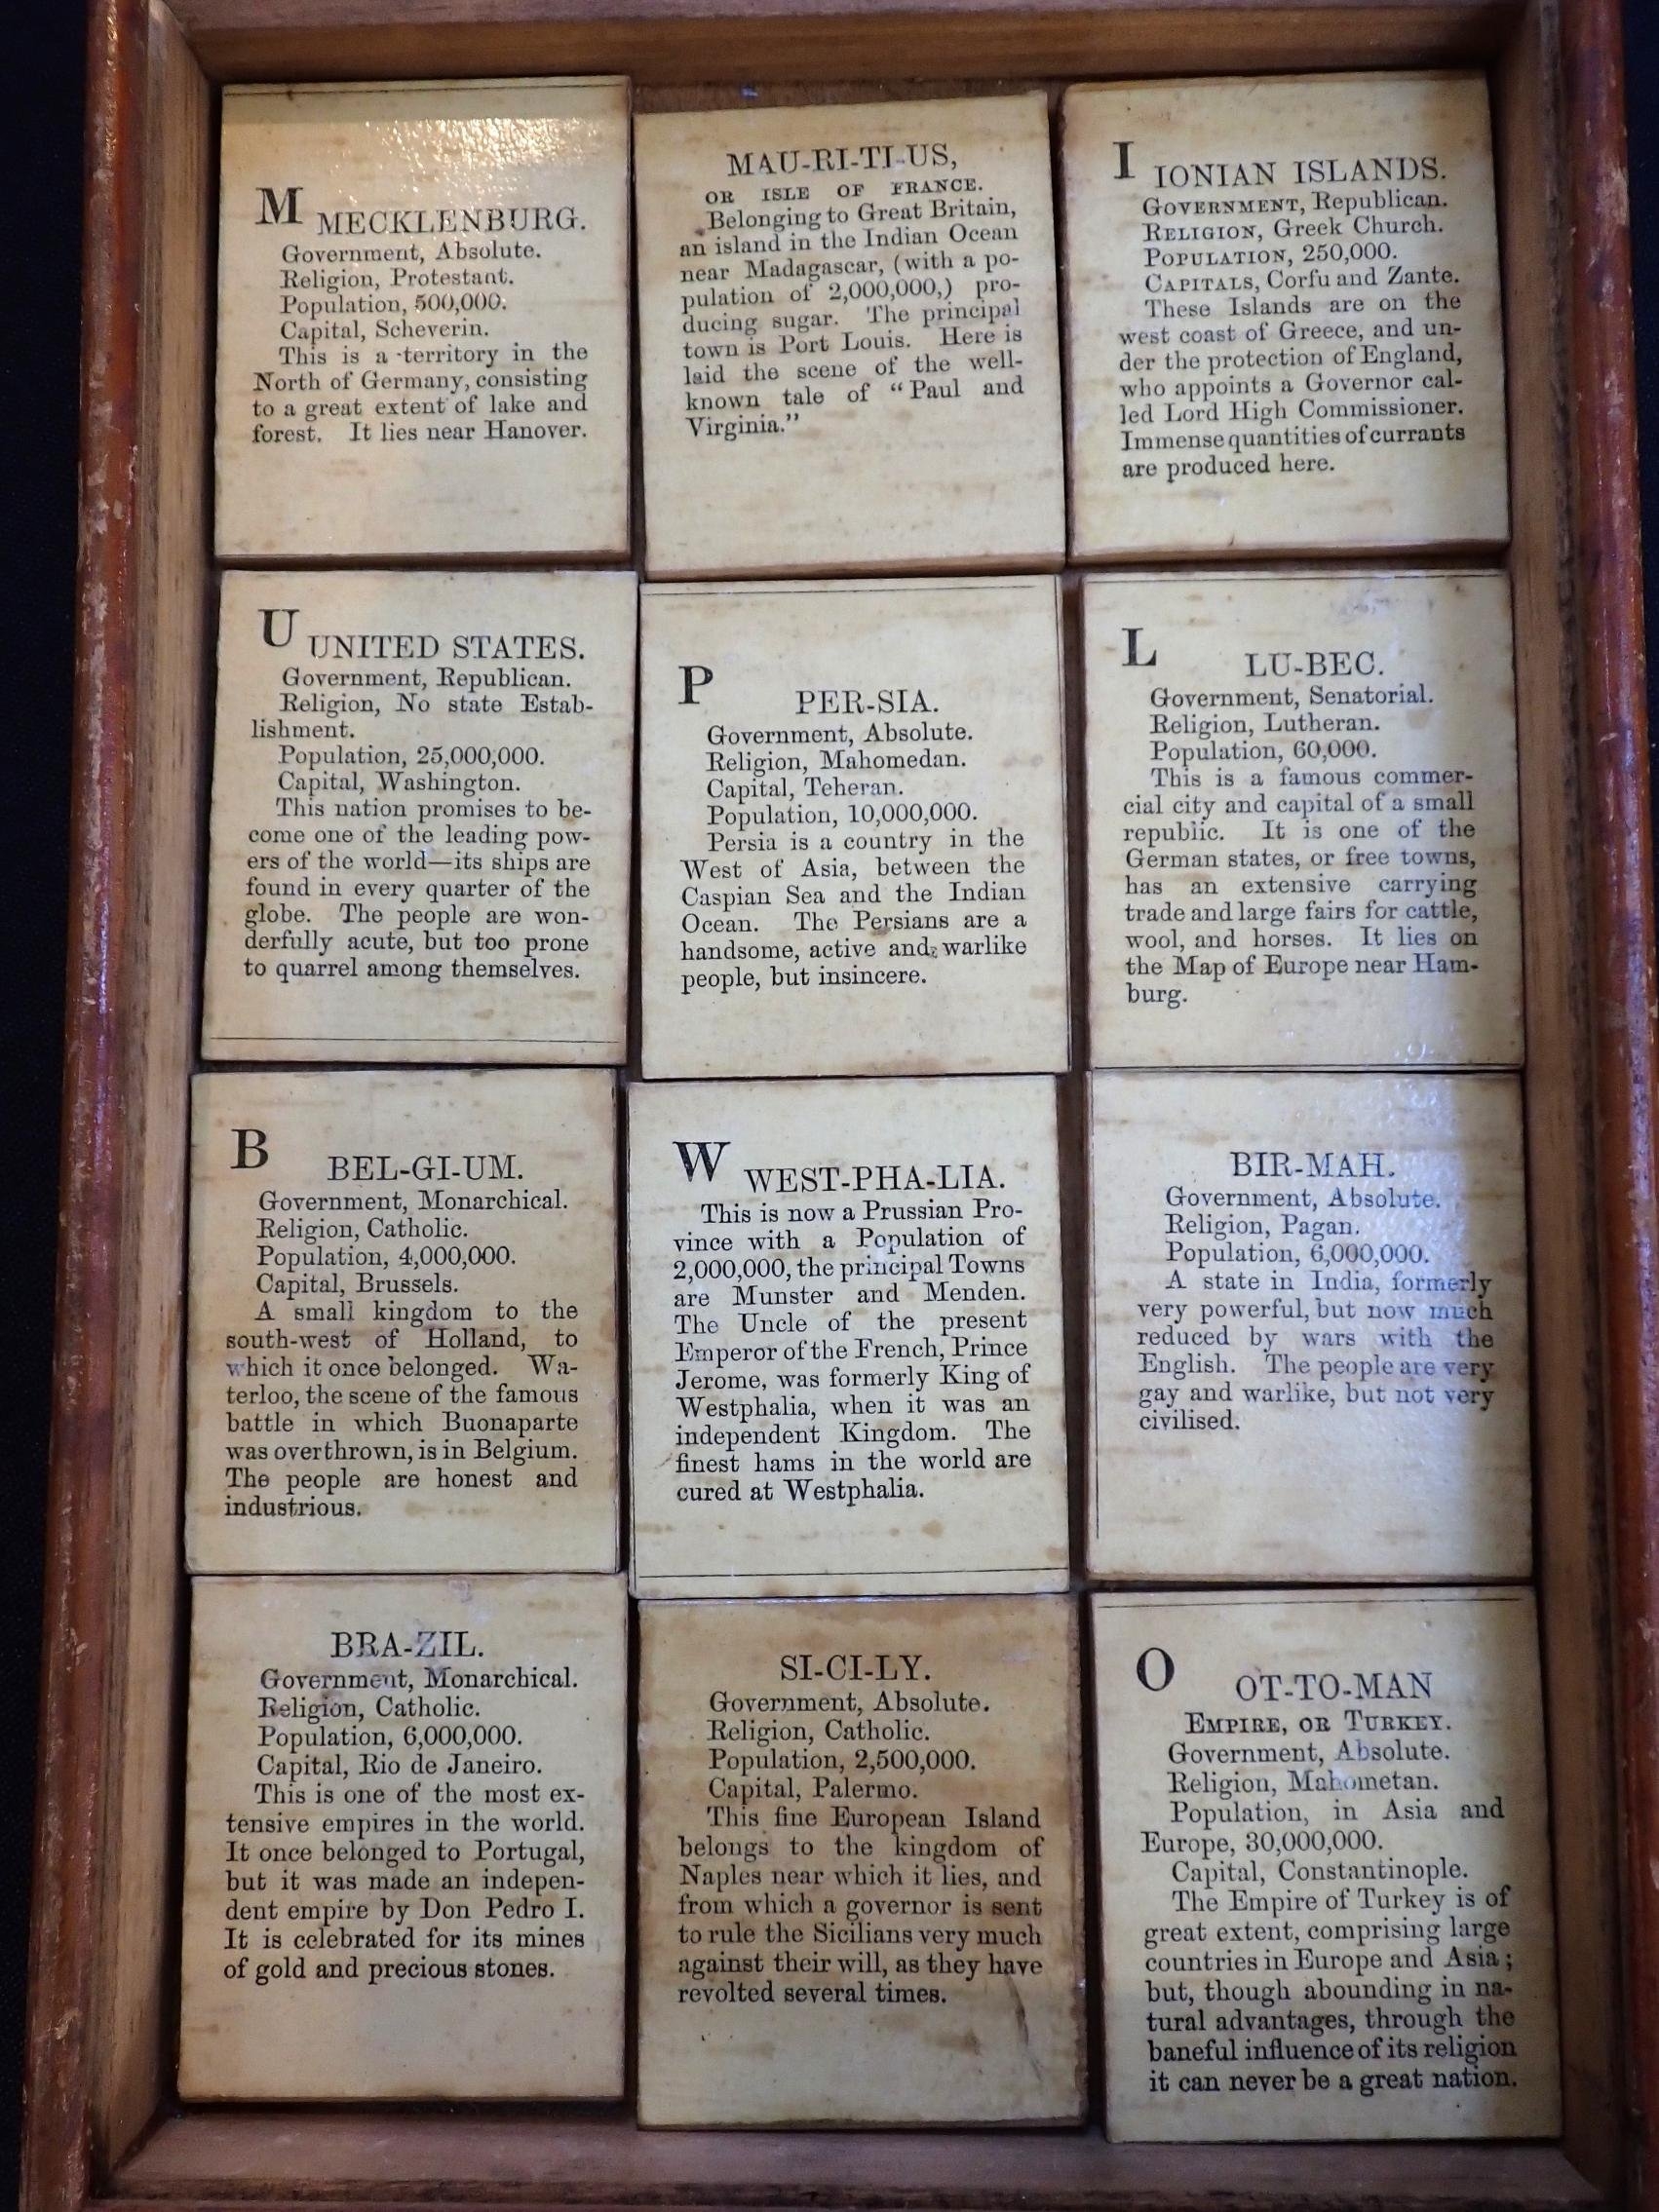 M MECKLENBURG.
Government, Absolute.
Religion, Protestant.
Population, 500,000.
Capital, Scheverin.
This is a territory in the
North of Germany, consisting
to a great extent of lake and
forest. It lies near Hanover.
MAU-RI-TI-US,
OR ISLE OF FRANCE.
Belonging to Great Britain,
an island in the Indian Ocean
near Madagascar, (with a po-
pulation of 2,000,000,) pro-
ducing sugar. The principal
town is Port Louis. Here is
laid the scene of the well-
known tale of “Paul and
Virginia.”
I IONIAN ISLANDS.
GOVERNMENT, Republican.
RELIGION, Greek Church.
POPULATION, 250,000.
CAPITALS, Corfu and Zante.
These Islands are on the
west coast of Greece, and un-
der the protection of England,
who appoints a Governor cal-
led Lord High Commissioner.
Immense quantities of currants
are produced here.
U UNITED STATES.
Government, Republican.
Religion, No state Estab-
lishment.
Population, 25,000,000.
Capital, Washington.
This nation promises to be-
come one of the leading pow-
ers of the world—its ships are
found in every quarter of the
globe. The people are won-
derfully acute, but too prone
to quarrel among themselves.
P PER-SIA.
Government, Absolute.
Religion, Mahomedan.
Capital, Teheran.
Population, 10,000,000.
Persia is a country in the
West of Asia, between the
Caspian Sea and the Indian
Ocean. The Persians are a
handsome, active and warlike
people, but insincere.
L LU-BEC.
Government, Senatorial.
Religion, Lutheran.
Population, 60,000.
This is a famous commer-
cial city and capital of a small
republic. It is one of the
German states, or free towns,
has an extensive carrying
trade and large fairs for cattle,
wool, and horses. It lies on
the Map of Europe near Ham-
burg.
B BEL-GI-UM.
Government, Monarchical.
Religion, Catholic.
Population, 4,000,000.
Capital, Brussels.
A small kingdom to the
south-west of Holland, to
which it once belonged. Wa-
terloo, the scene of the famous
battle in which Buonaparte
was overthrown, is in Belgium.
The people are honest and
industrious.
W WEST-PHA-LIA.
This is now a Prussian Pro-
vince with a Population of
2,000,000, the principal Towns
are Munster and Menden.
The Uncle of the present
Emperor of the French, Prince
Jerome, was formerly King of
Westphalia, when it was an
independent Kingdom. The
finest hams in the world are
cured at Westphalia.
BIR-MAH.
Government, Absolute.
Religion, Pagan.
Population, 6,000,000.
A state in India, formerly
very powerful, but now much
reduced by wars with the
English. The people are very
gay and warlike, but not very
civilised.
BRA-ZIL.
Government, Monarchical.
Religion, Catholic.
Population, 6,000,000.
Capital, Rio de Janeiro.
This is one of the most ex-
tensive empires in the world.
It once belonged to Portugal,
but it was made an indepen-
dent empire by Don Pedro I.
It is celebrated for its mines
of gold and precious stones.
SI-CI-LY.
Government, Absolute.
Religion, Catholic.
Population, 2,500,000.
Capital, Palermo.
This fine European Island
belongs to the kingdom of
Naples near which it lies, and
from which a governor is sent
to rule the Sicilians very much
against their will, as they have
revolted several times.
O OT-TO-MAN
EMPIRE, OR TURKEY.
Government, Absolute.
Religion, Mahometan.
Population, in Asia and
Europe, 30,000,000.
Capital, Constantinople.
The Empire of Turkey is of
great extent, comprising large
countries in Europe and Asia;
but, though abounding in na-
tural advantages, through the
baneful influence of its religion
it can never be a great nation.